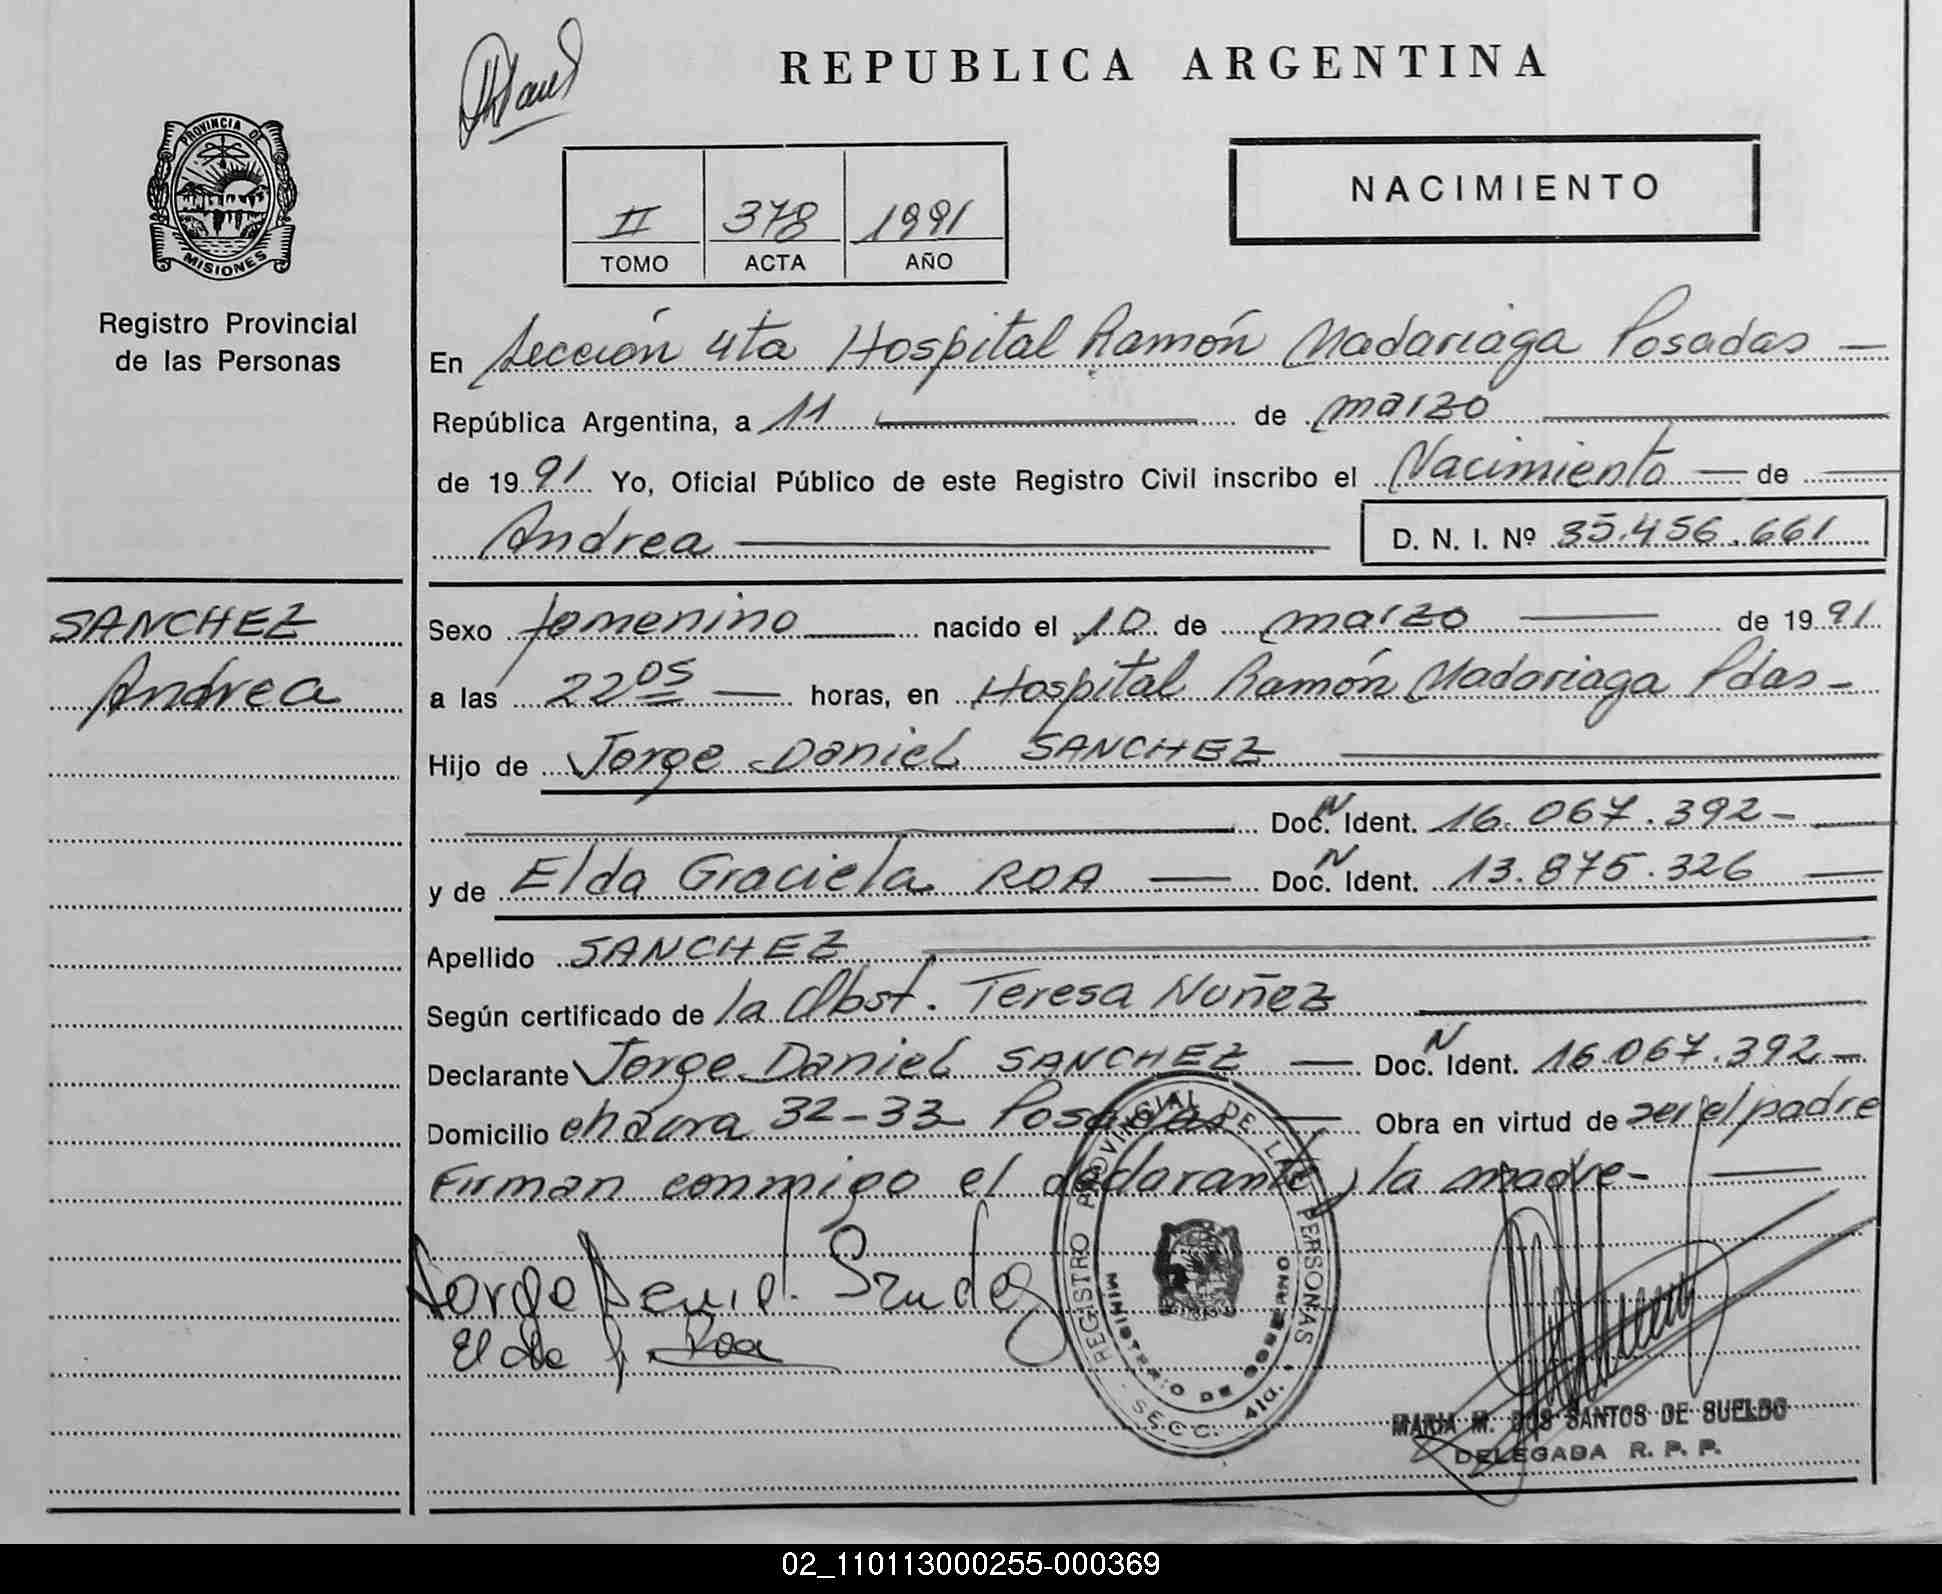 REPUBLICA ARGENTINA
PROVINCIA DE
MISIONES
Registro Provincial
de las Personas
NACIMIENTO
II 378 1991
TOMO ACTA AÑO
En Sección 4ta Hospital Ramón Madariaga Posadas —
República Argentina, a 11 de marzo
de 1991 Yo, Oficial Público de este Registro Civil inscribo el Nacimiento — de
Andrea D. N. I. Nº 35.456.661
SANCHEZ
Andrea
Sexo femenino nacido el 10 de marzo de 1991
a las 22 05 — horas, en Hospital Ramón Madariaga Pdas -
Hijo de Jorge Daniel SANCHEZ
Doc. N Ident. 16.067.392 -
y de Elda Graciela ROA — Doc. N Ident. 13.875.326
Apellido SANCHEZ
Según certificado de la Obst. Teresa Nuñez
Declarante Jorge Daniel SANCHEZ — Doc. N Ident. 16.067.392 -
Domicilio chacra 32-33 Posadas — Obra en virtud de ser el padre
Firman conmigo el declarante y la madre -
Jorge Daniel Sanchez
Elda G. Roa
REGISTRO PROVINCIAL DE LAS PERSONAS
MINISTERIO DE GOBIERNO
SECC. 4ta.
MARIA M. DOS SANTOS DE SUELDO
DELEGADA R. P. P.
02_110113000255-000369